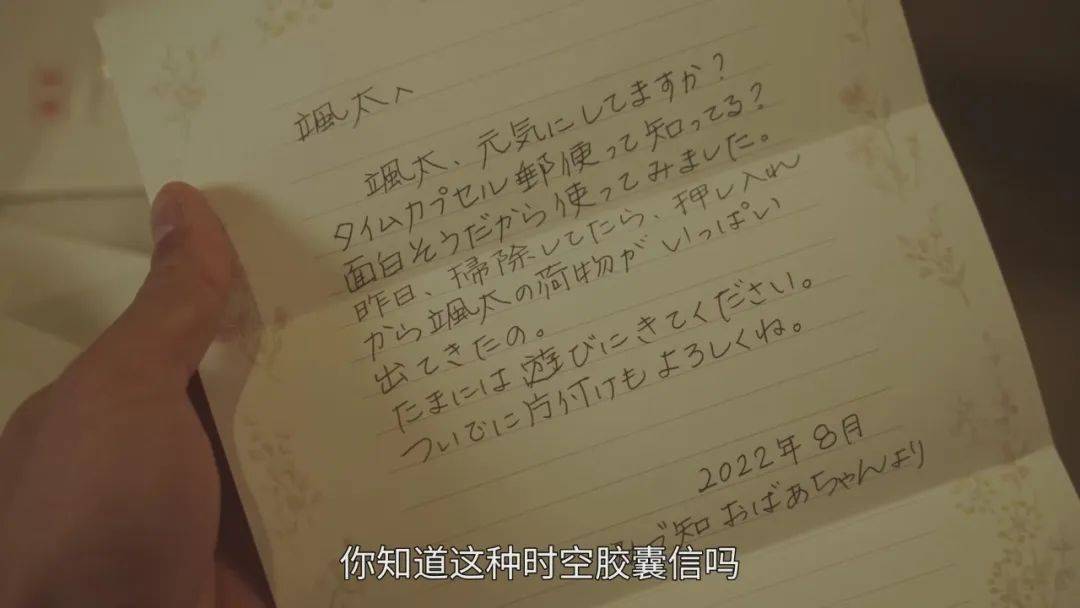 颯太へ
颯太、元気にしてますか？
タイムカプセル郵便って知ってる？
面白そうだから使ってみました。
昨日、掃除してたら、押し入れ
から颯太の荷物がいっぱい
出てきたの。
たまには遊びにきてください。
ついでに片付けもよろしくね。
2022年8月
知 おばあちゃんより
你知道这种时空胶囊信吗